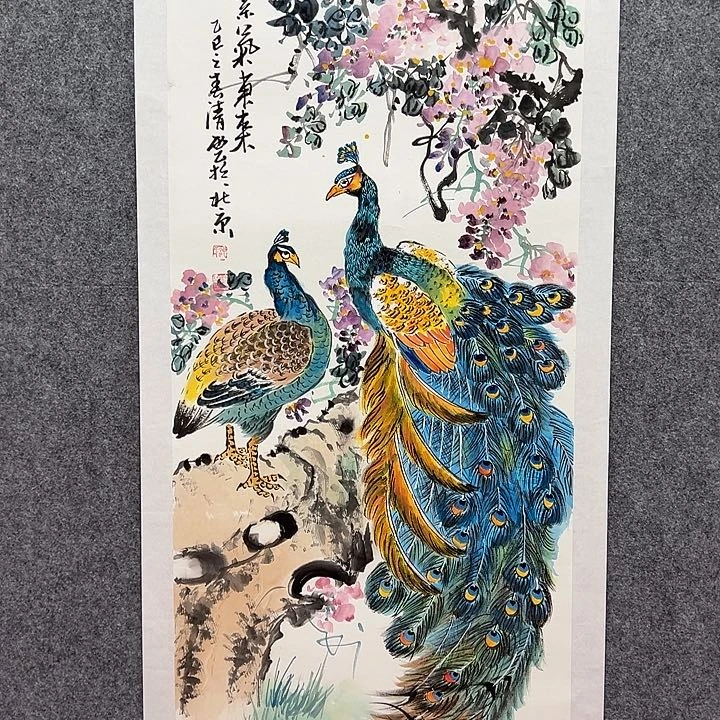 紫氣東來
乙巳之春清
於北京